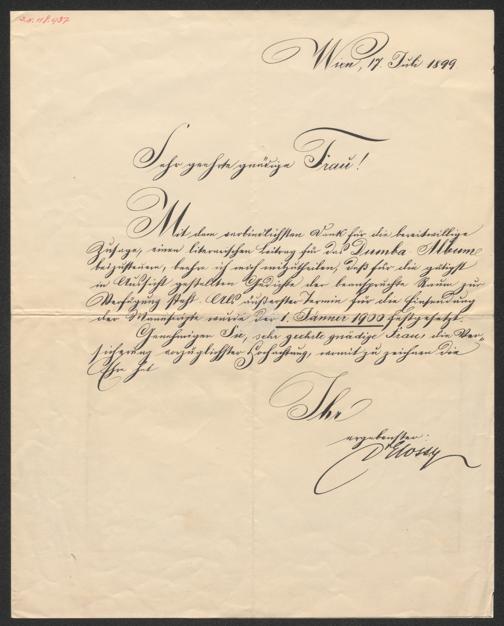 I.N. 118.437
Wien, 17. Juli 1899
Sehr geehrte gnädige Frau!
Mit dem verbindlichsten Dank für die bereitwillige
Zusage, einen literarischen Beitrag für das Dumba Album
beizusteuern, beehre ich mich mitzutheilen, daß für die gütigst
in Aussicht gestellten Gedichte der beanspruchte Raum zur
Verfügung steht. Als äußerster Termin für die Einsendung
der Manuscripte wurde der 1. Jänner 1900 festgesetzt.
Genehmigen Sie, sehr geehrte gnädige Frau die Ver-
sicherung vorzüglichster Hochachtung, womit zu zeichnen die
Ehre hat
Ihr
ergebenster:
Dr Glossy